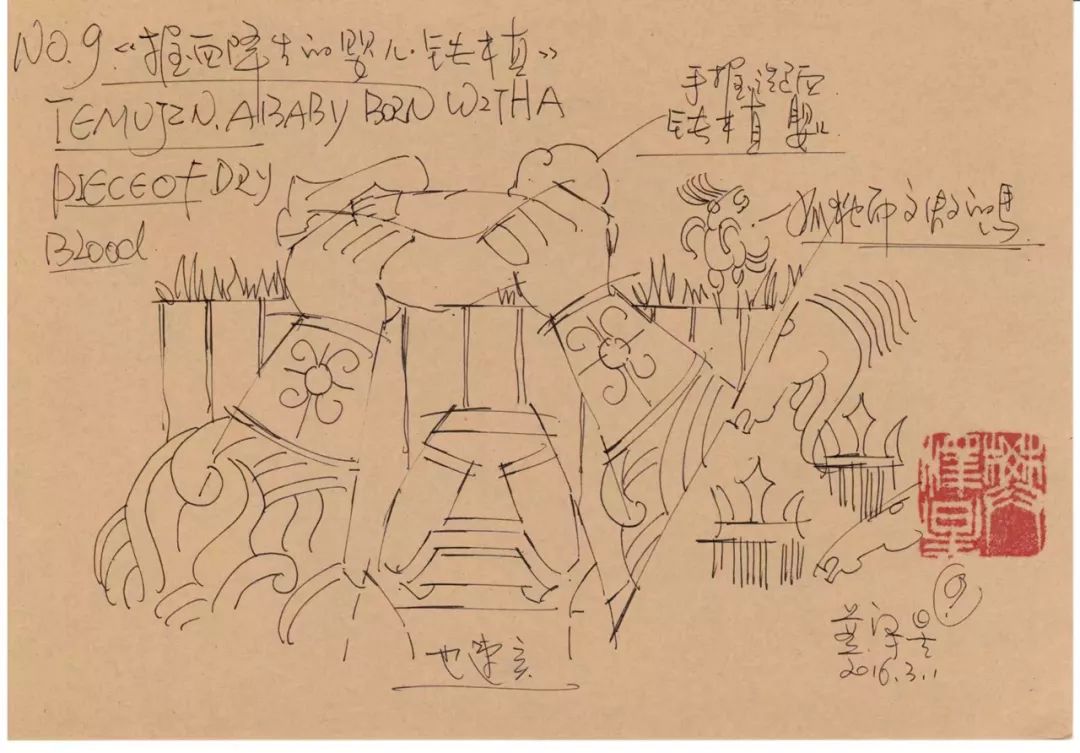 NO.9《握血降生的婴儿·铁木真》
TEMUJIN. A BABY BORN WITH A
PIECE OF DRY
BLOOD
手握凝血
铁木真 婴儿
的马
也速亥
9
2016.3.1